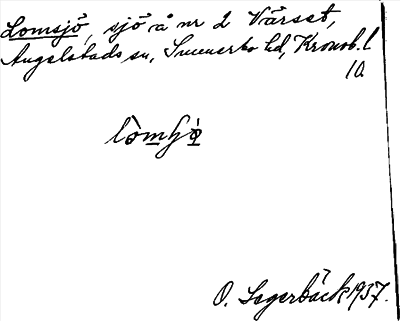 Lomsjö, sjö å nr 2 Vårset,
Angelstads sn, Sunnerbo hd, Kronob. l
10.
O. Lagerbäck 1937.